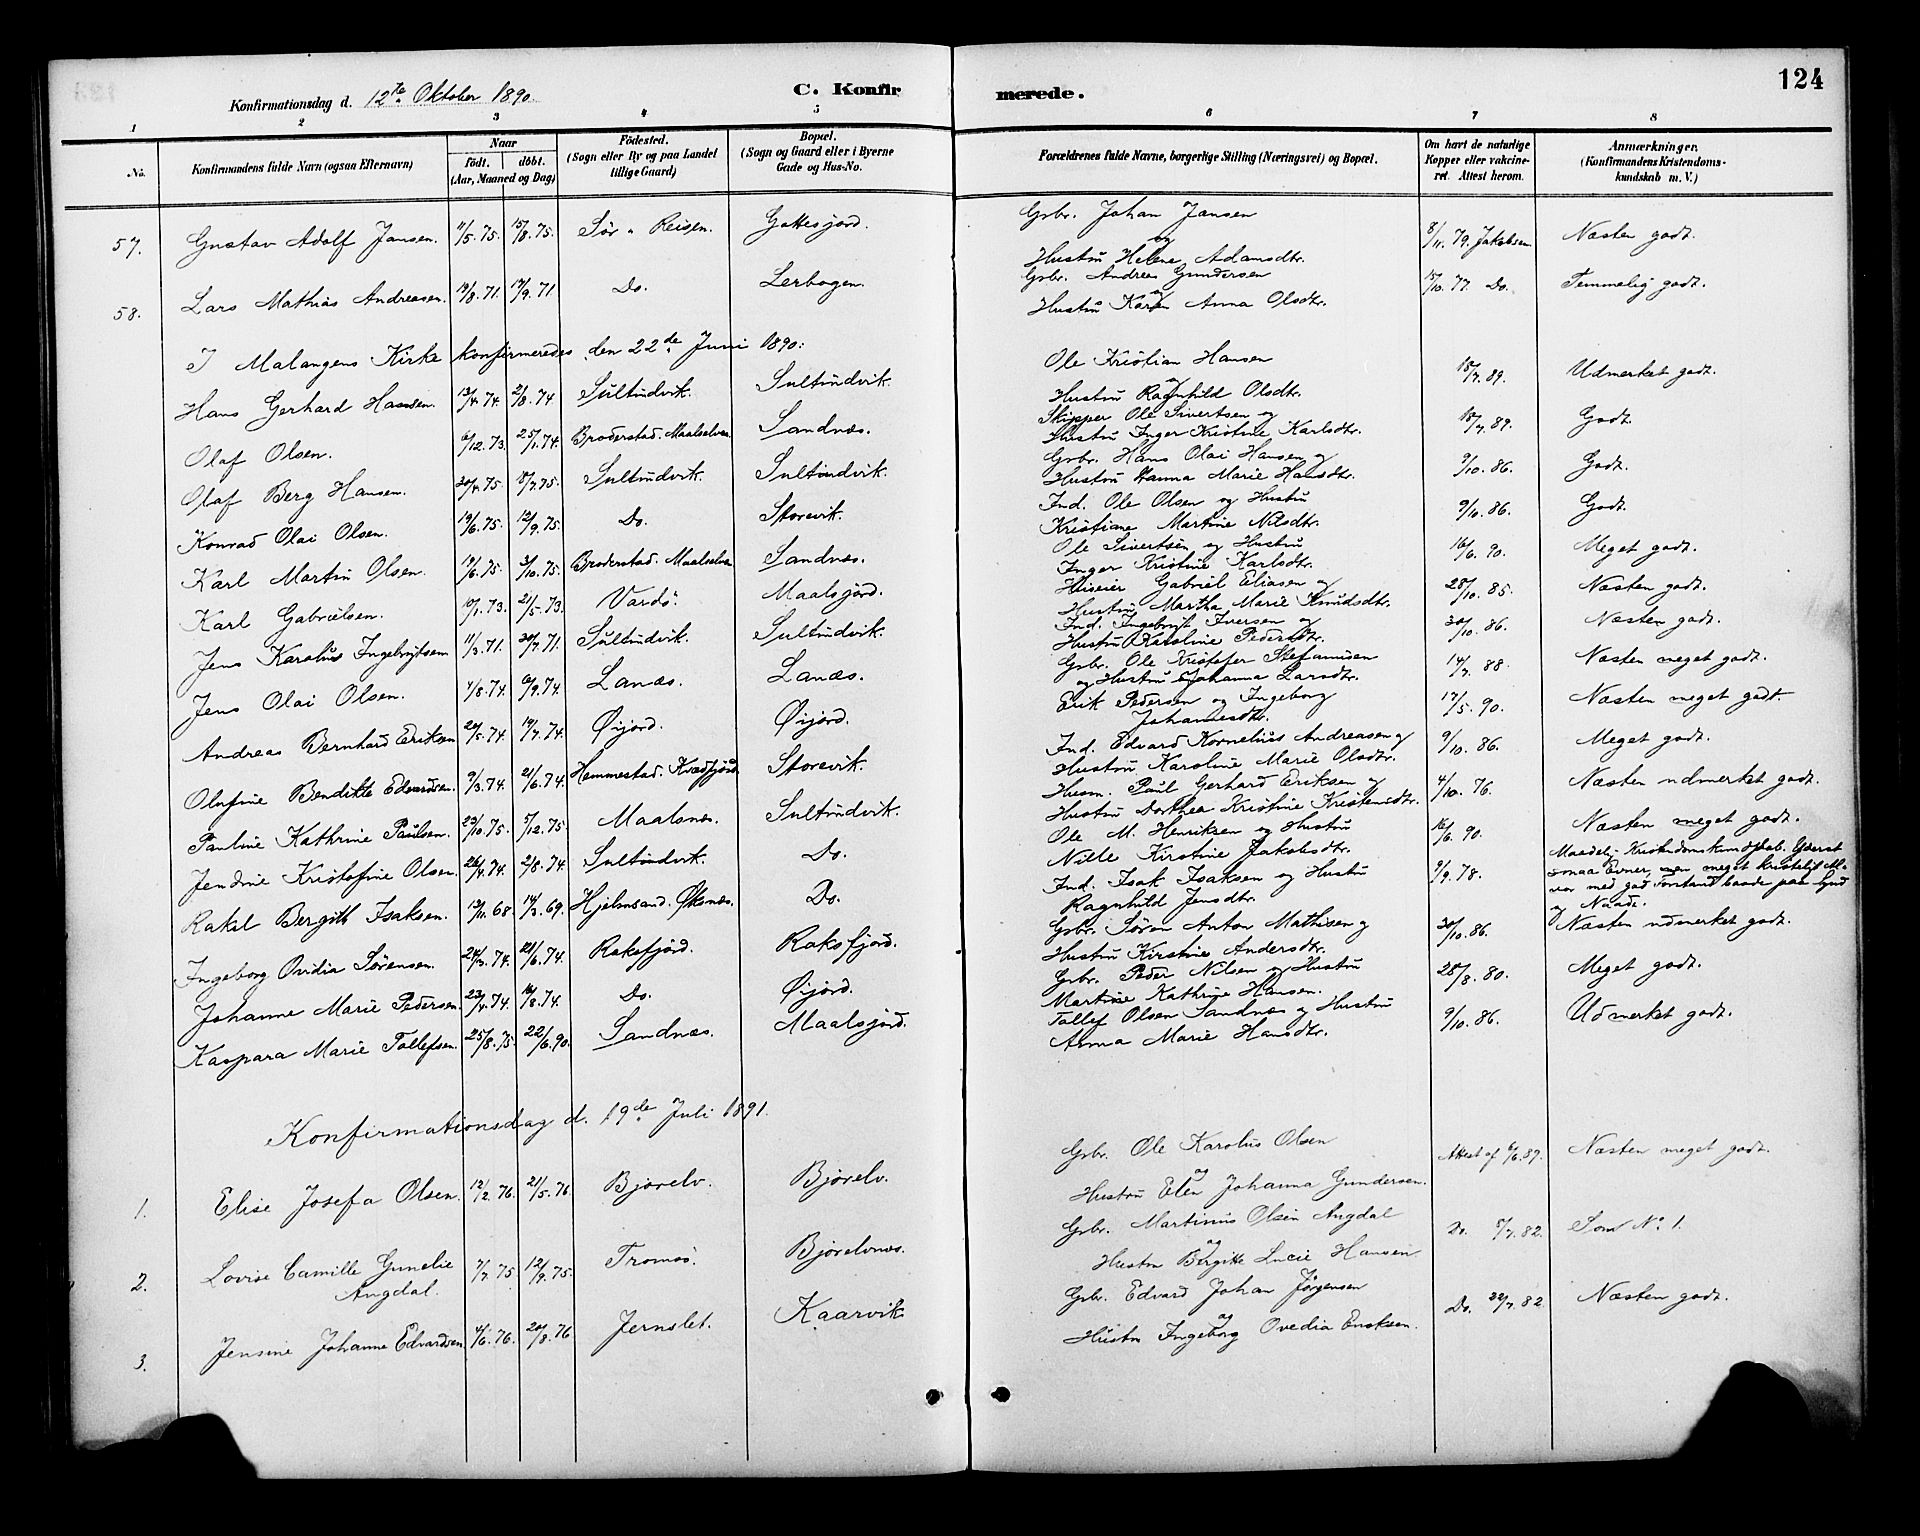 124
Konfirmationsdag d. 12te Oktober 1890.
C. Konfirmerede.
1 2 3 4 5 6 7 8
No. Konfirmandens fulde Navn (ogsaa Efternavn) Naar født. døbt. (Aar, Maaned og Dag) Fødested. (Sogn eller By og paa Landet tillige Gaard) Bopæl. (Sogn og Gaard eller i Byerne Gade og Hus-No. Forældrenes fulde Navne, borgerlige Stilling (Næringsvei) og Bopæl. Om havt de naturlige Kopper eller vakcineret. Attest herom. Anmærkninger. (Konfirmandens Kristendomskundskab m. V.)
57. Gustav Adolf Jansen. 11/5.75. 15/8.75. Sør-Reisen. Gottesjord. Gbr. Johan Jansen og Hustru Helene Adamsdtr. 8/11.79. Jakobsen Næsten godt.
58. Lars Mathias Andreasen. 19/8.71. 17/9.71 Do. Lerbogen. Gbr. Andreas Gundersen og Hustru Karen Anna Olsdtr. 15/10.77 Do. Temmelig godt.
I Malangens Kirke konfirmeredes den 22de Juni 1890:
Hans Gerhard Hansen. 13/4.74. 2/8.74. Sultindvik. Sultindvik. Ole Kristian Hansen og Hustru Ragnhild Olsdtr. 18/7.89. Udmerket godt.
Olaf Olsen. 6/12.73. 25/1.74. Broderstad. Maalselven Sandnæs. Skipper Ole Sivertsen og Hustru Inger Kristine Karlsdtr. 18/7.89. Godt.
Olaf Berg Hansen. 20/4.75. 18/7.75. Sultindvik. Sultindvik. Gbr. Hans Olai Hansen og Hustru Hanna Marie Hansdtr. 9/10.86. Godt.
Konrad Olai Olsen. 19/6.75. 12/9.75. Do. Storevik. Ind. Ole Olsen og Hustru Kristiane Martine Nilsdtr. 9/10.86. Godt.
Karl Martin Olsen. 19/6.75. 31/10.75. Broderstad. Maalselven Sandnæs. Ole Sivertsen og Hustru Inger Kristine Karlsdtr. 16/6.90. Meget godt.
Karl Gabrielsen. 10/1.73. 21/5.73. Vardø. Maalsjord. Huseier Gabriel Eliasen og Hustru Martha Marie Knudsdtr. 28/10.85. Næsten godt.
Jens Karolus Ingebrigtsen 11/3.71. 30/7.71. Sultindvik. Sultindvik. Ind. Ingebrigt Iversen og Hustru Karoline Pedersdtr. 30/10.86. Næsten godt.
Jens Olai Olsen. 1/8.74. 6/9.74. Lanæs. Lanæs. Gbr. Ole Kristofer Stefansen og Hustru Johanna Larsdtr. 14/7.88. Næsten meget godt.
Andreas Bernhard Eriksen 20/5.74. 19/7.74. Øijord. Øijord. Erik Pedersen og Ingeborg Johannesdtr. 17/5.90. Næsten meget godt.
Olufine Bendikte Edvardsen. 9/3.74. 21/6.74. Hemmestad. Kvædfjord. Storevik. Ind. Edvard Kornelius Andreasen og Hustru Karoline Marie Olsdtr. 9/10.86. Meget godt.
Pauline Kathrine Paulsen. 29/10.75. 5/12.75. Maalsnes. Sultindvik. Husm. Paul Gerhard Eriksen og Hustru Dorthea Kristine Kristensdtr. 4/10.76. Næsten udmerket godt.
Jendine Kristofine Olsen. 26/4.74. 2/8.74. Sultindvik. Do. Ole M. Henriksen og Hustru Nille Kirstine Jakobsdtr. 16/6.90. Næsten meget godt.
Rakel Bergith Isaksen. 13/11.68. 14/3.69. Hjelmsand. Øksnæs. Do. Ind. Isak Isaksen og Hustru Ragnhild Jensdtr. 9/9.78. Maadelig Kristendomskundskab. Yderst smaa Evner, men meget kristelig Alvor med god Forstand baade paa Synd og Naade.
Ingeborg Ovidia Sørensen. 24/3.74. 21/6.74. Raksfjord. Raksfjord. Gbr. Søren Anton Mathisen og Hustru Kirstine Andersdtr. 30/10.86. Næsten udmerket godt.
Johanne Marie Pedersen. 23/4.74. 16/8.74. Do. Øijord. Gbr. Peder Nilsen og Hustru Martine Kathrine Hansen. 28/8.80. Meget godt.
Kaspara Marie Tollefsen. 25/8.75. 22/6.90. Sandnæs. Maalsjord. Tollef Olsen Sandnæs og Hustru Anna Marie Hansdtr. 9/10.86. Udmerket godt.
Konfirmationsdag d. 19de Juli 1891.
1. Elise Josefa Olsen. 12/2.76. 21/5.76. Bjørelv. Bjørelv. Gbr. Ole Karolus Olsen og Hustru Elen Johanna Gundersen. Attest af 6/6.87. Næsten meget godt.
2. Lovise Camille Gunelie Angdal. 7/7.75 12/9.75. Tromsø. Bjørelvnes. Gbr. Martinus Olsen Angdal og Hustru Birgitte Lucie Hansen. Do. 5/7.82. Som No. 1.
3. Jensine Johanne Edvardsen 4/6.76. 20/8.76 Jernslet. Kaarvik. Gbr. Edvard Johan Jørgensen og Hustru Ingeborg Ovedia Enoksen. Do. 22/7.82. Næsten godt.